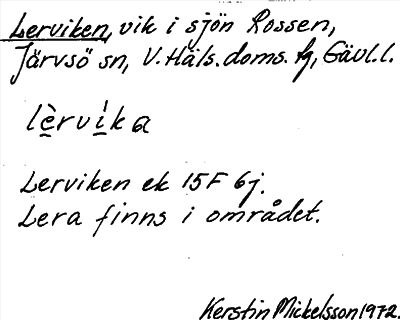 Lerviken, vik i sjön Rossen,
Järvsö sn, V. Häls. doms. tg, Gävl.l.
lèrvi̍ka
Lerviken ek 15F 6j.
Lera finns i området.
Kerstin Mickelsson 1972.